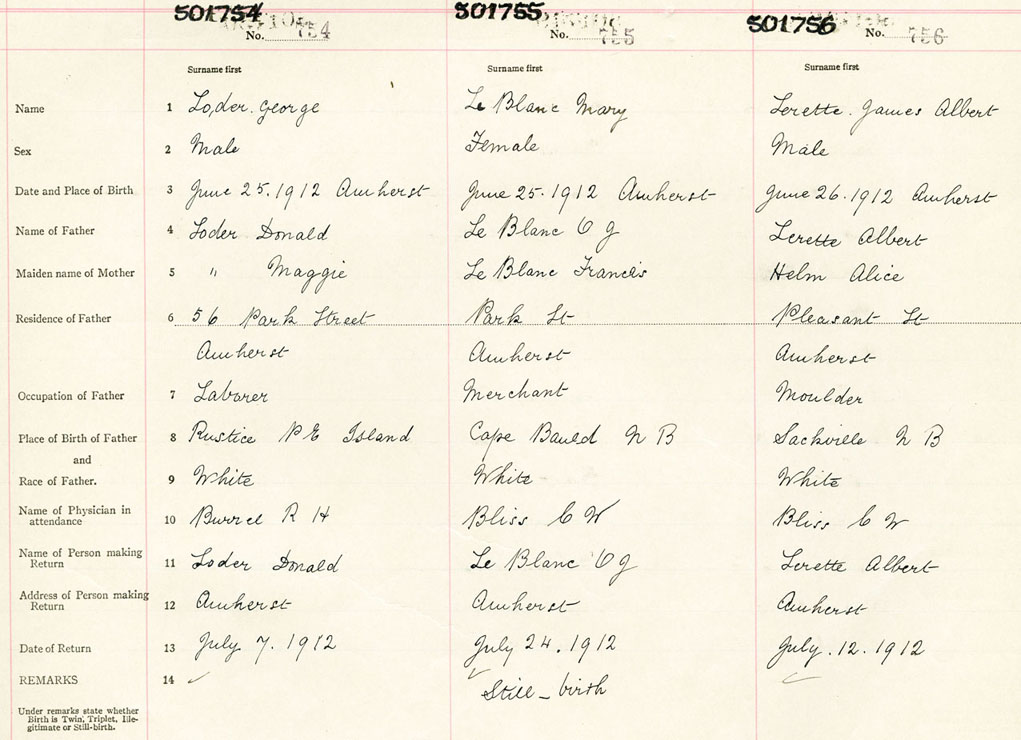 501754 501755 501756
No. 754 No. 755 No. 756
Surname first Surname first Surname first
Name 1 Loder. George Le Blanc Mary Lerette. James Albert
Sex 2 Male Female Male
Date and Place of Birth 3 June 25. 1912 Amherst June 25. 1912 Amherst June 26. 1912 Amherst
Name of Father 4 Loder Donald Le Blanc O J Lerette Albert
Maiden name of Mother 5 " Maggie Le Blanc Francis Helm Alice
Residence of Father 6 56 Park Street Park St Pleasant St
Amherst Amherst Amherst
Occupation of Father 7 Laborer Merchant Moulder
Place of Birth of Father 8 Rustice P E Island Cape Bauld N B Sackville N B
and
Race of Father. 9 White White White
Name of Physician in
attendance 10 R H Bliss C W Bliss C W
Name of Person making
Return 11 Loder Donald Le Blanc O J Lerette Albert
Address of Person making
Return 12 Amherst Amherst Amherst
Date of Return 13 July 7. 1912 July 24. 1912 July. 12. 1912
REMARKS 14 ✓ ✓ Still - birth ✓
Under remarks state whether
Birth is Twin, Triplet, Ille-
gitimate or Still-birth.